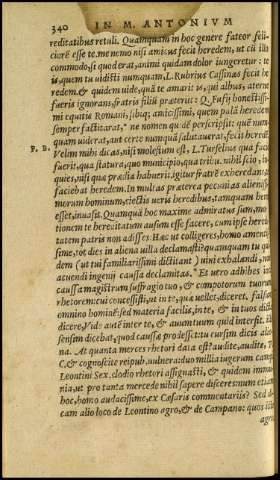 340 IN M. ANTONIVM
reditatibus retuli. Quamquam in hoc genere fateor feli-
ciorē esse te. me nemo nisi amicus fecit heredem, ut cū illo
commodo, si quod erat, animi quidam dolor iungeretur: te
is, quem tu uidisti nunquam, L. Rubrius Cassinas fecit he
redem. & quidem uide, quā te amarit is, qui albus, aterne
fueris ignorans, fratris filiū præterijt: Q. Fufij honestissi-
mi equitis Romani, suiq; amicissimi, quem palā heredem
semper factitarat, ne nomen quidē perscripsit: quē nun-
quam uiderat, aut certe numquā salutauerat, fecit heredē.
P. B. Velim mihi dicas, nisi molestum est, L. Turselius qua facie
fuerit, qua statura, quo municipio, qua tribu. nihil scio, in-
quies, nisi quæ prædia habuerit. igitur fratrē exheredans, te
faciebat heredem. In multas præterea pecunias alienissi-
morum hominum, eiectis ueris heredibus, tamquam heres
esset, inuasit. Quamquā hoc maxime admiratus sum, men-
tionem te hereditatum ausum esse facere, cum ipse heredi-
tatem patris non adisses. Hæc ut colligeres, homo amentis-
sime, tot dies in aliena uilla declamasti? quamquam tu qui-
dem (ut tui familiarissimi dictitant) uini exhalandi, non
acuendi ingenij caussa declamitas. Et uero adhibes ioci
caussa magistrum suffragio tuo, & compotorum tuorum
rhetorem: cui concessisti, ut in te, quæ uellet, diceret. salsum
omnino hominē: sed materia facilis, in te, & in tuos dicta
dicere. Vide autē inter te, & auum tuum quid intersit. ille
sensim dicebat, quod caussæ prodesset: tu cursim dicis alie-
na. At quanta merces rhetori data est? audite, audite, P.
C. & cognoscite reipub. uulnera: duo millia iugerum campi
Leontini Sex. Clodio rhetori assignasti, & quidem immu-
nia, ut pro tanta mercede nihil sapere disceres. num etiam
hoc, homo audacissime, ex Cæsaris commentarijs? Sed di-
cam alio loco de Leontino agro, & de Campano: quos iste
agros